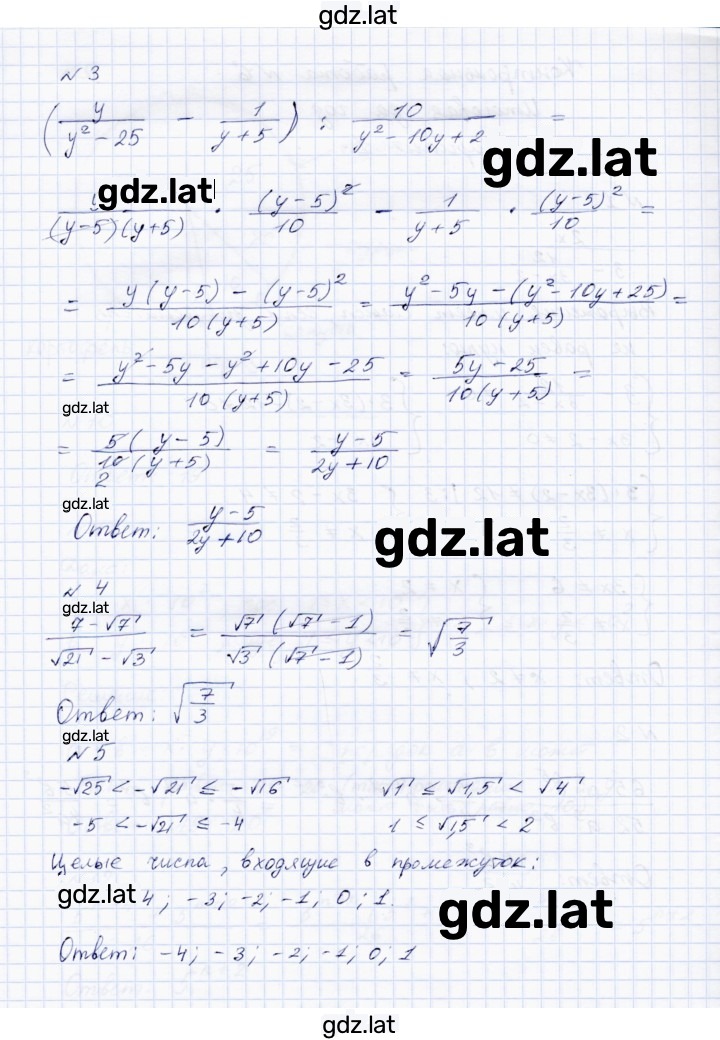 gdz.lat
№ 3
(y/(y² − 25) − 1/(y + 5)) : 10/(y² − 10y + 2 =
gdz.lat
gdz.lat
/((y−5)(y+5)) · (y−5)²/10 − 1/(y+5) · (y−5)²/10 =
= (y(y−5) − (y−5)²)/(10(y+5)) = (y² − 5y − (y² − 10y + 25))/(10(y+5)) =
= (y² − 5y − y² + 10y − 25)/(10(y+5)) = (5y − 25)/(10(y+5)) =
gdz.lat
= 5(y − 5)/(10(y+5)) = (y − 5)/(2y + 10)
2
gdz.lat
Ответ: (y − 5)/(2y + 10)
gdz.lat
№ 4
gdz.lat
(7 − √7)/(√21 − √3) = √7(√7 − 1)/(√3(√7 − 1)) = √(7/3)
Ответ: √(7/3)
gdz.lat
№ 5
−√25 < −√21 ≤ −√16 √1 ≤ √1,5 < √4
−5 < −√21 ≤ −4 1 ≤ √1,5 < 2
Целые числа, входящие в промежуток:
gdz.lat 4; −3; −2; −1; 0; 1.
gdz.lat
Ответ: −4; −3; −2; −1; 0; 1
gdz.lat